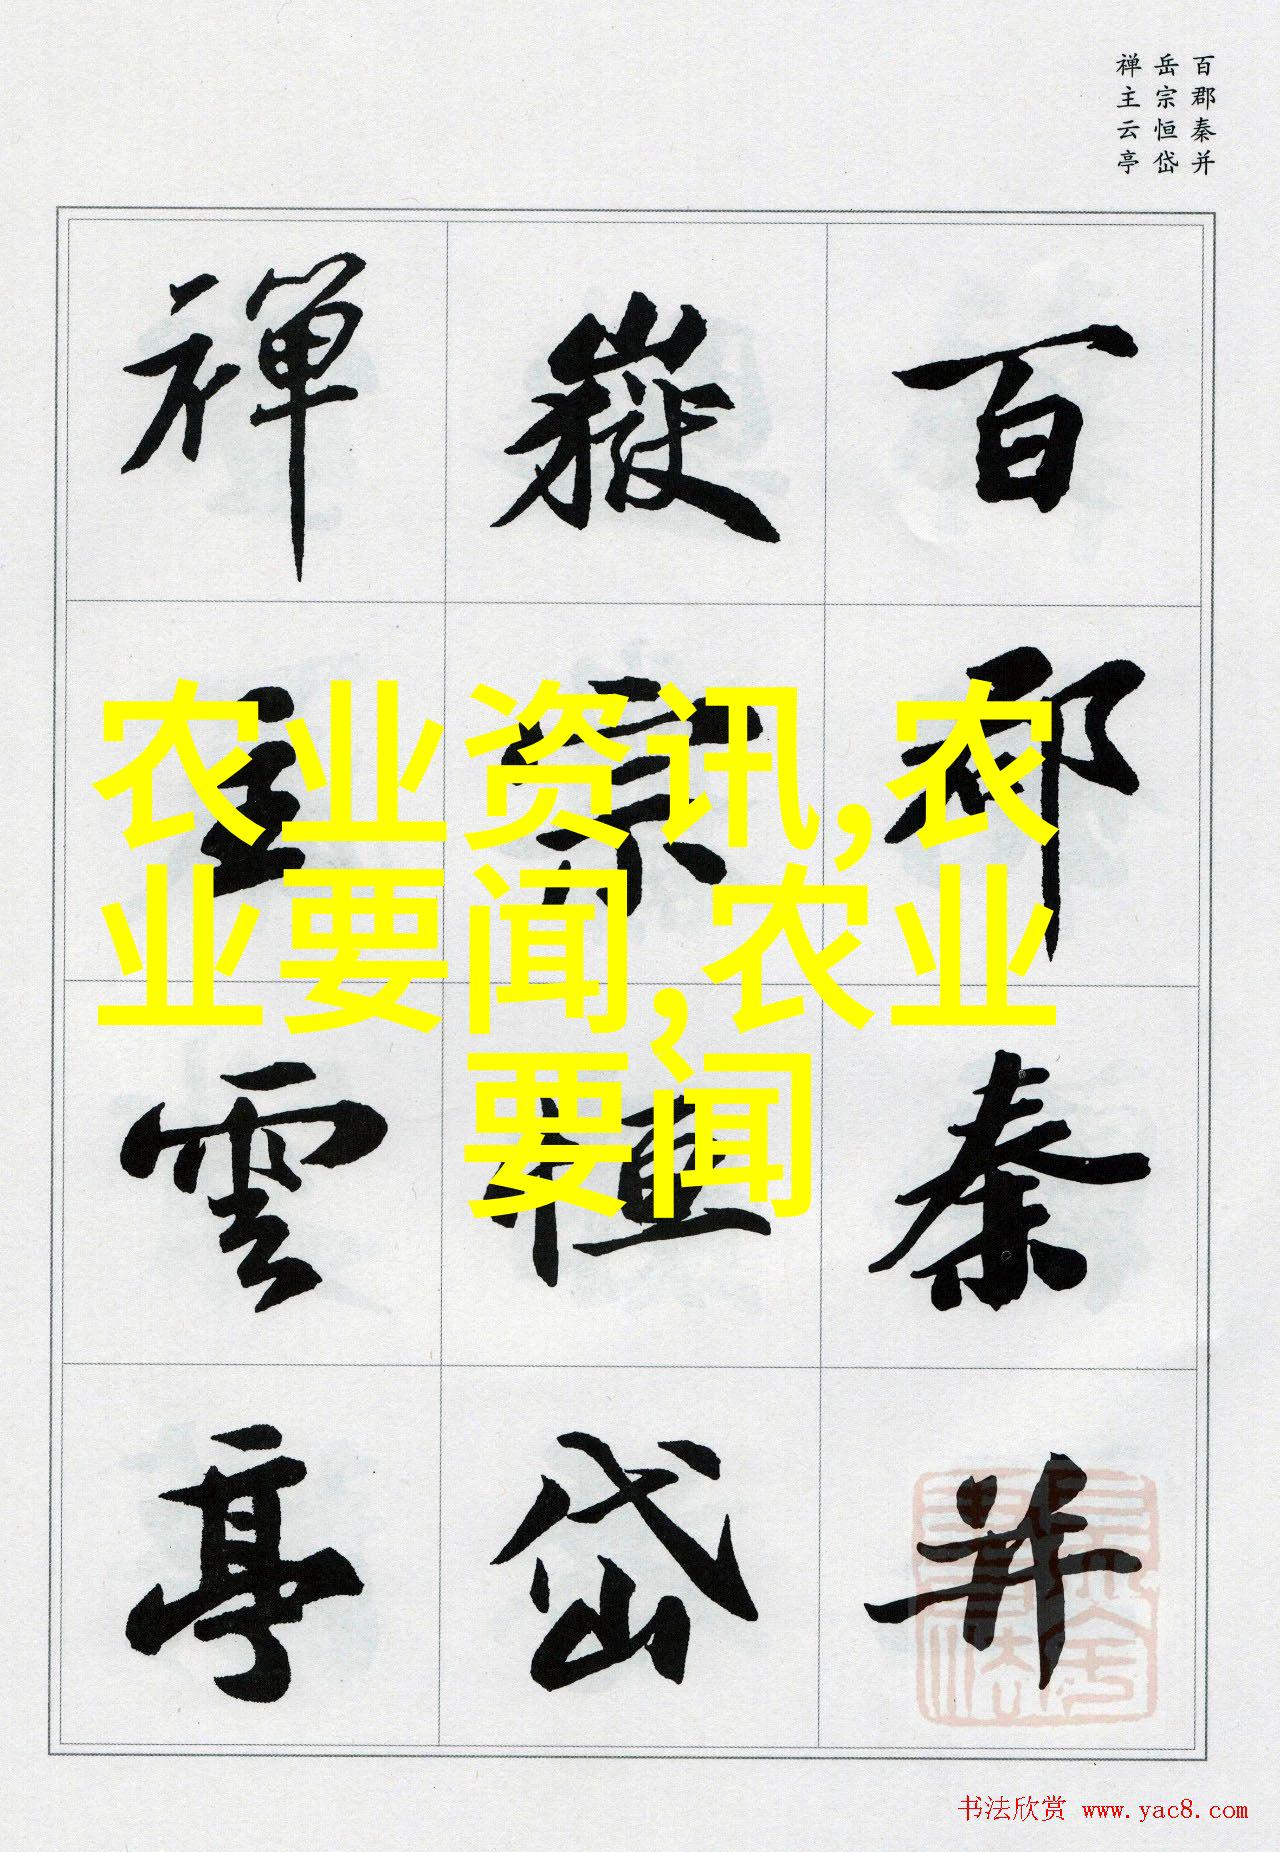 百郡秦并
岳宗恒岱
禅主云亭
百郡秦并
嶽宗恒岱
禅主雲亭
农业资讯,农
业要闻,农业
要闻
书法欣赏 www.yac8.com